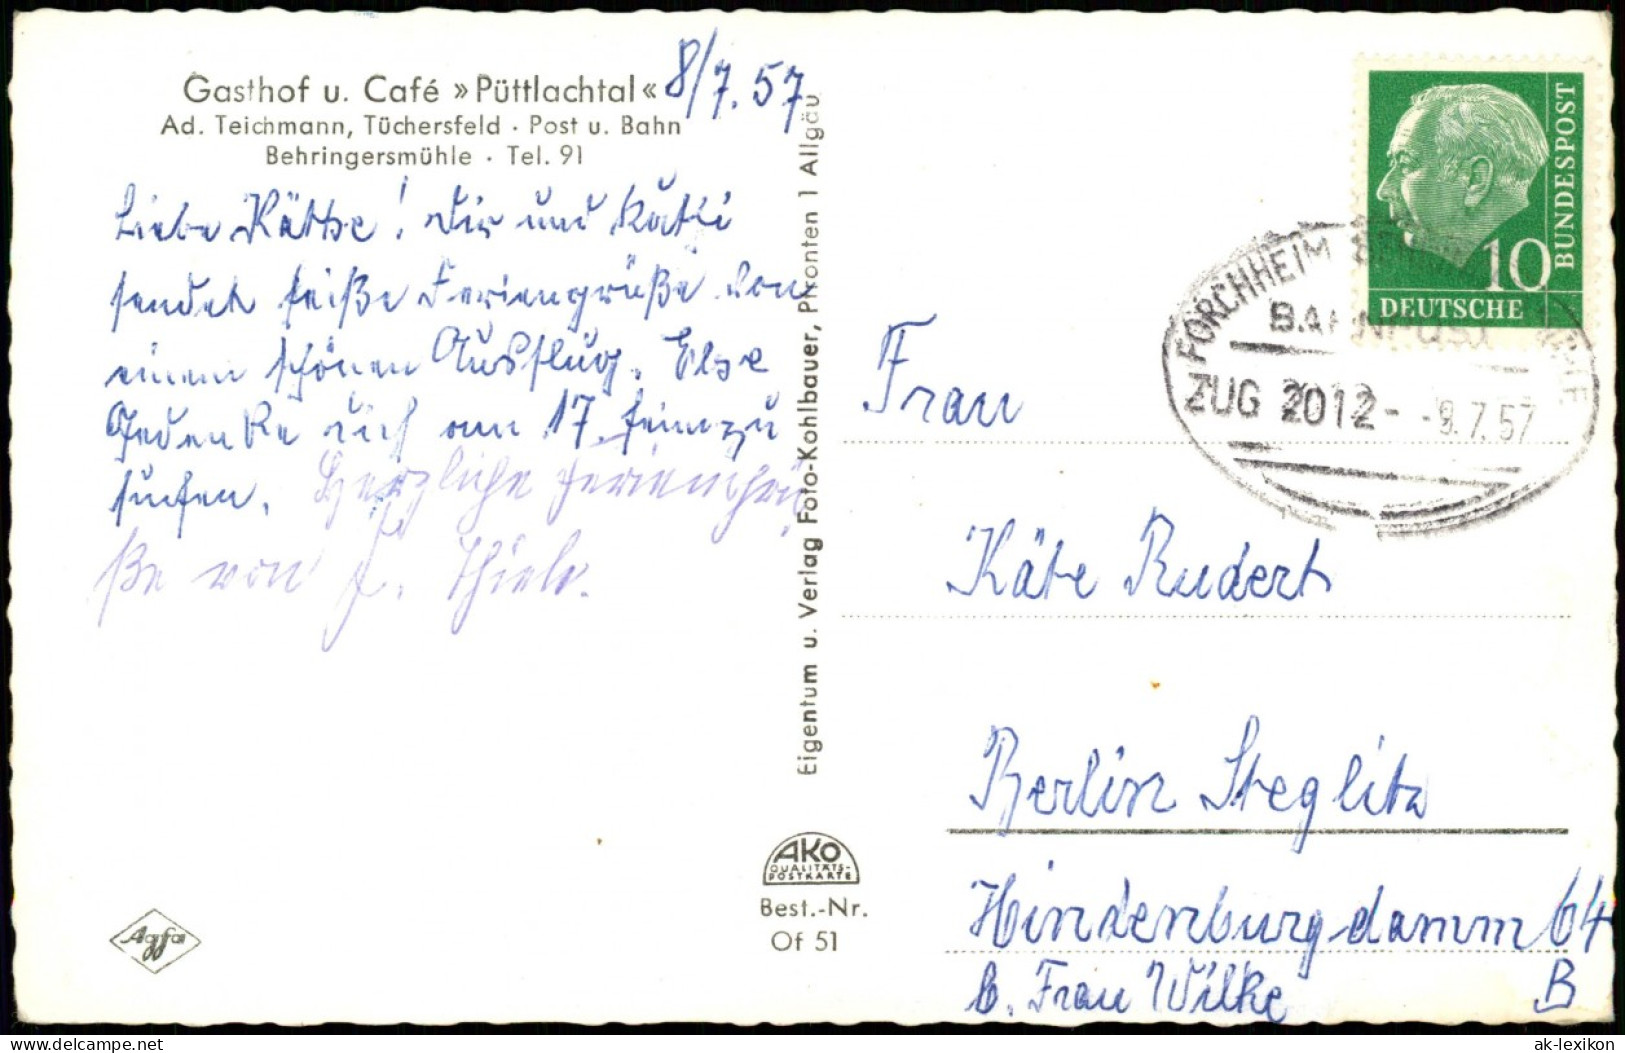 Gasthof u. Café »Püttlachtal«
Ad. Teichmann, Tüchersfeld · Post u. Bahn
Behringersmühle · Tel. 91
8/7. 57
Liebe Käthe! Dir und Kathi
sendet heiße Feriengrüße von
einem schönen Ausflug. Else
Gedenke dich am 17. heimzu
suchen. Herzliche Feriengrü
ße von J. Thiele.
Eigentum u. Verlag Foto-Kohlbauer, Pfronten 1 Allgäu
AKO
QUALITÄTS-
POSTKARTE
Best.-Nr.
Of 51
Agfa
DEUTSCHE
BUNDESPOST
10
FORCHHEIM
BAHNPOST
ZUG 2012
9.7.57
Frau
Käte Rudert
Berlin Steglitz
Hindenburgdamm 64
b. Frau Wilke
B
my.delcampe.net
ak-lexikon